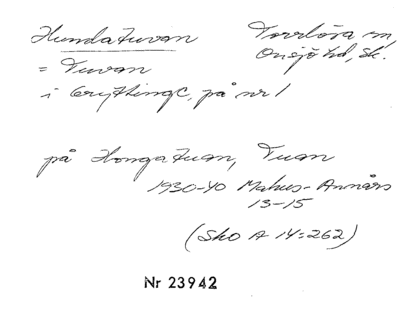 Hundatuvan Torrlösa sn,
Onsjö hd, Sk.
= Tuvan
i Grytinge, på nr 1
på Hongatuan, Tuan
1930-40 Mahus-Annårs
13-15
(Sko A 14:262)
Nr 23942